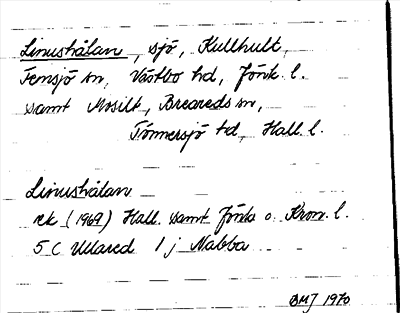 Linushålan, sjö, Kullhult,
Femsjö sn, Västbo hd, Jönk. l.
samt Mosilt, Breareds sn,
Tönnersjö hd, Hall. l.
Linushålan
ek (1969) Hall. samt Jönk. o. Kron. l.
5 C Ullared 1 j Nabba
BMJ 1970